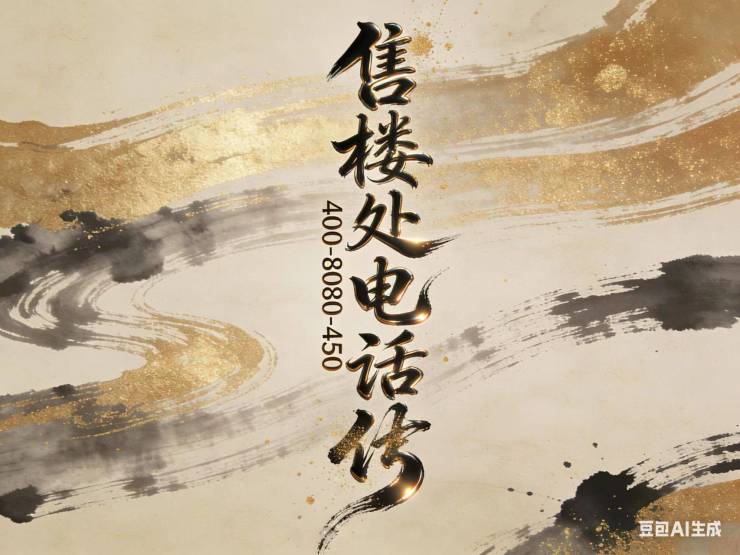 售楼处电话
400-8080-450
豆包AI生成